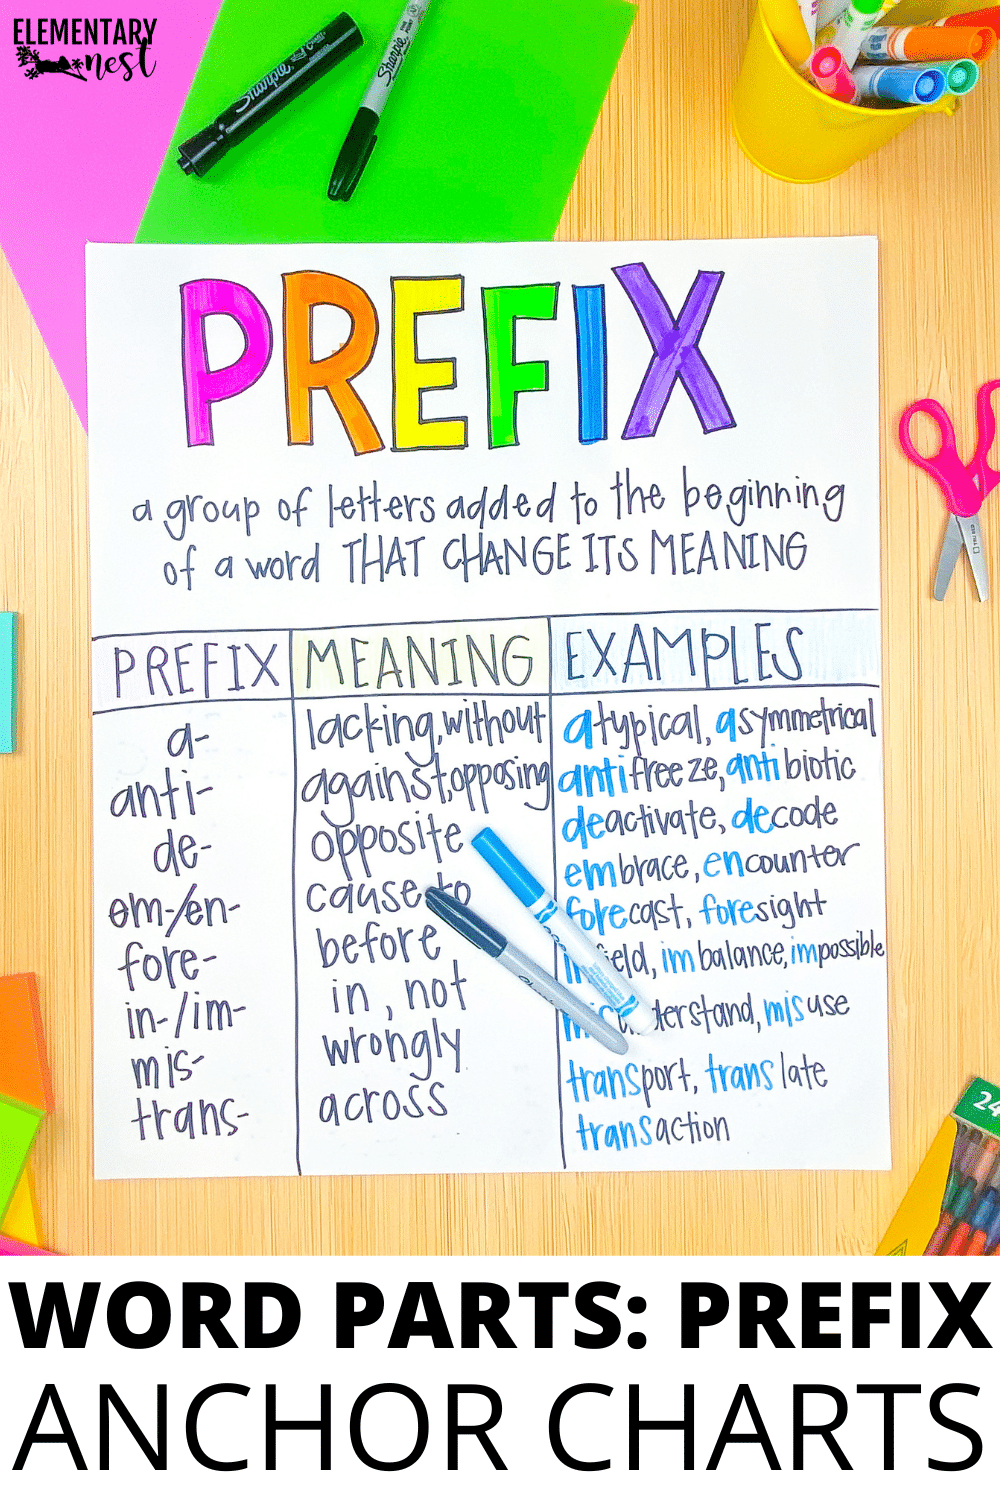 ELEMENTARY
nest
Sharpie
Sharpie
PREFIX
a group of letters added to the beginning
of a word THAT CHANGE ITS MEANING
PREFIX MEANING EXAMPLES
a- lacking, without atypical, asymmetrical
anti- against, opposing antifreeze, antibiotic
de- opposite deactivate, decode
em-/en- cause to embrace, encounter
fore- before forecast, foresight
in-/im- in, not eld, imbalance, impossible
mis- wrongly derstand, misuse
trans- across transport, translate
transaction
24
WORD PARTS: PREFIX
ANCHOR CHARTS